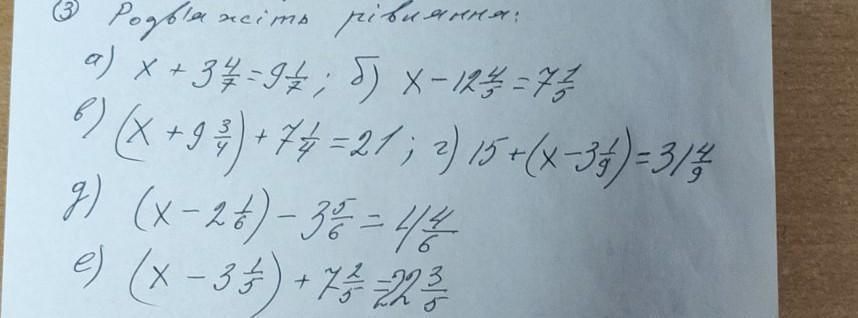 ③ Розв'яжіть рівняння:
а) x + 3 4/7 = 9 1/7 ; б) x − 12 4/5 = 7 1/5
в) (x + 9 3/4) + 7 1/4 = 21 ; г) 15 + (x − 3 1/9) = 31 4/9
д) (x − 2 1/6) − 3 5/6 = 4 4/6
е) (x − 3 1/5) + 7 2/5 = 22 3/5